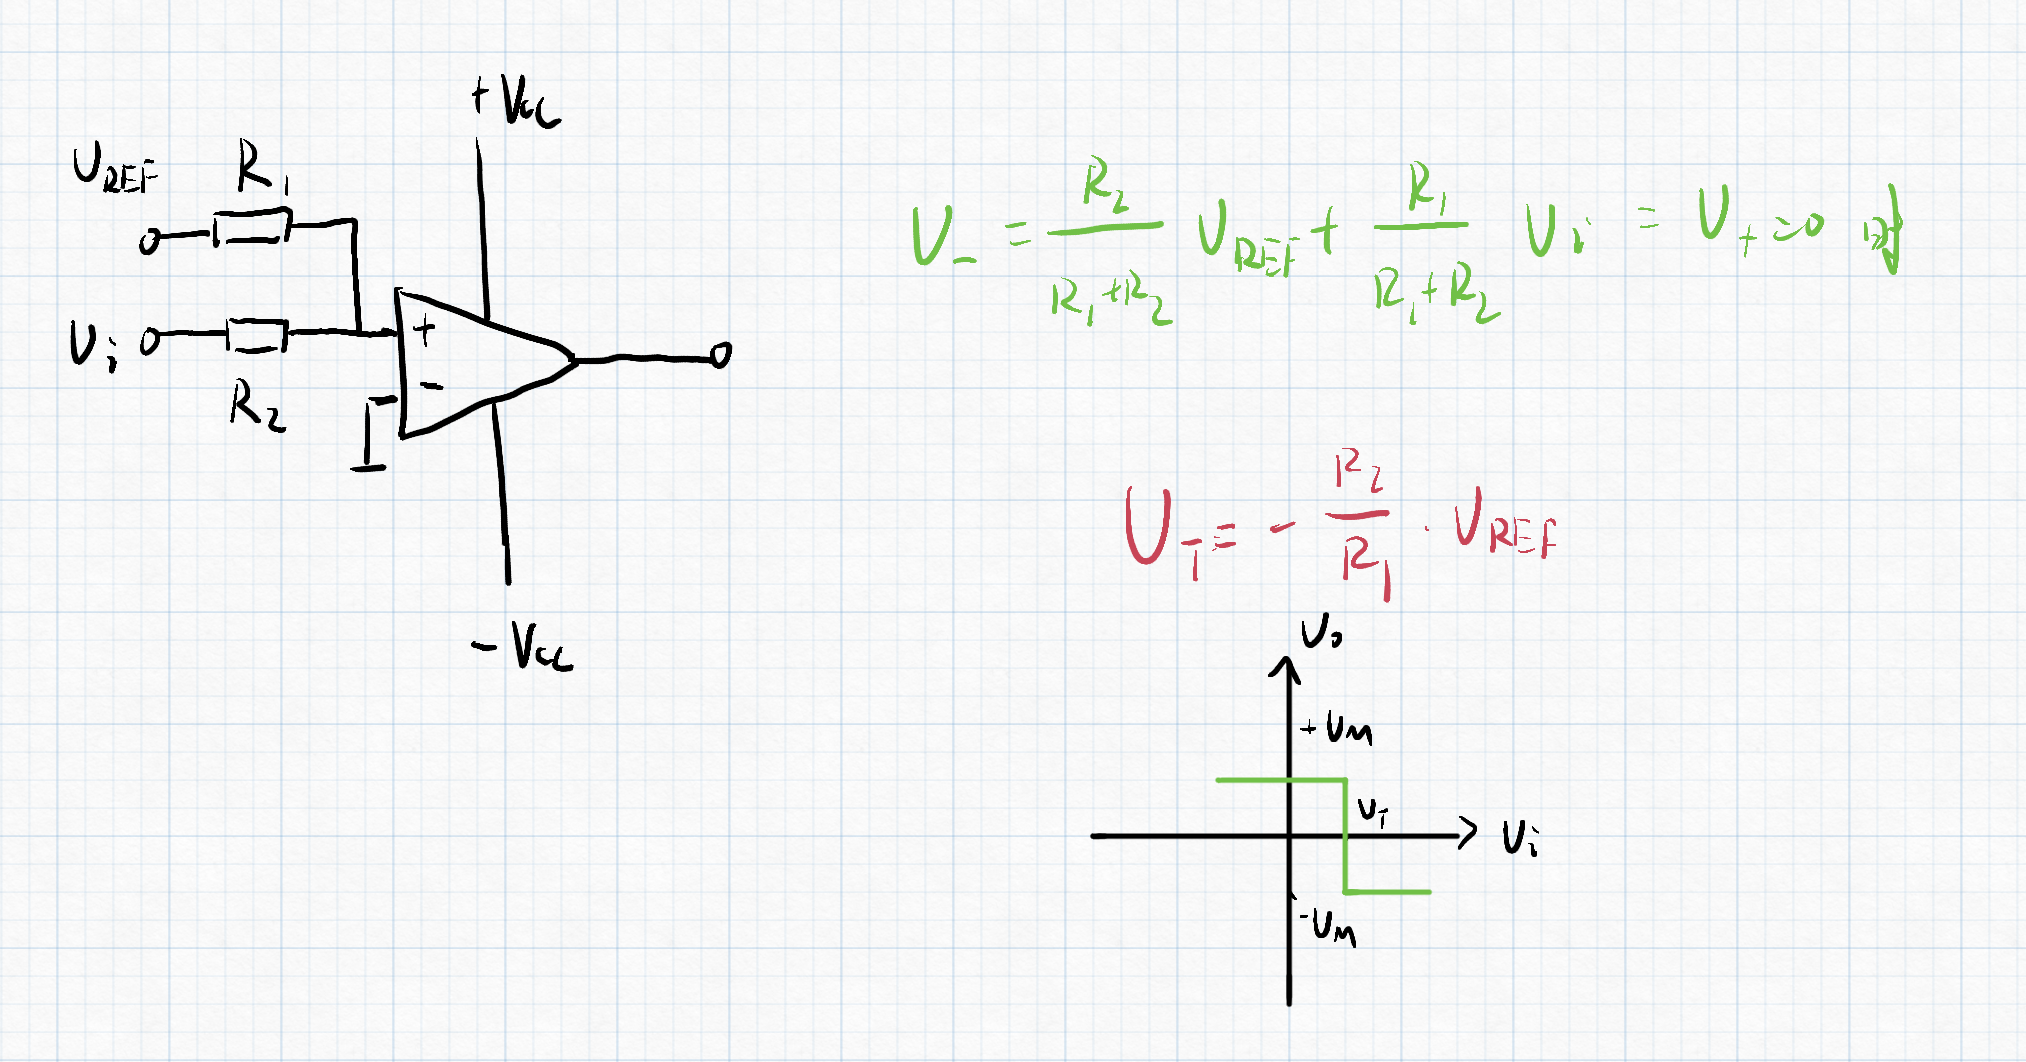 +Vcc
U_REF R_1
U_i
R_2
+
-
-Vcc
U_- = \frac{R_2}{R_1+R_2} U_{REF} + \frac{R_1}{R_1+R_2} U_i = U_+ =0 时
U_T = - \frac{R_2}{R_1} \cdot U_{REF}
U_o
+U_M
U_T
U_i
-U_M